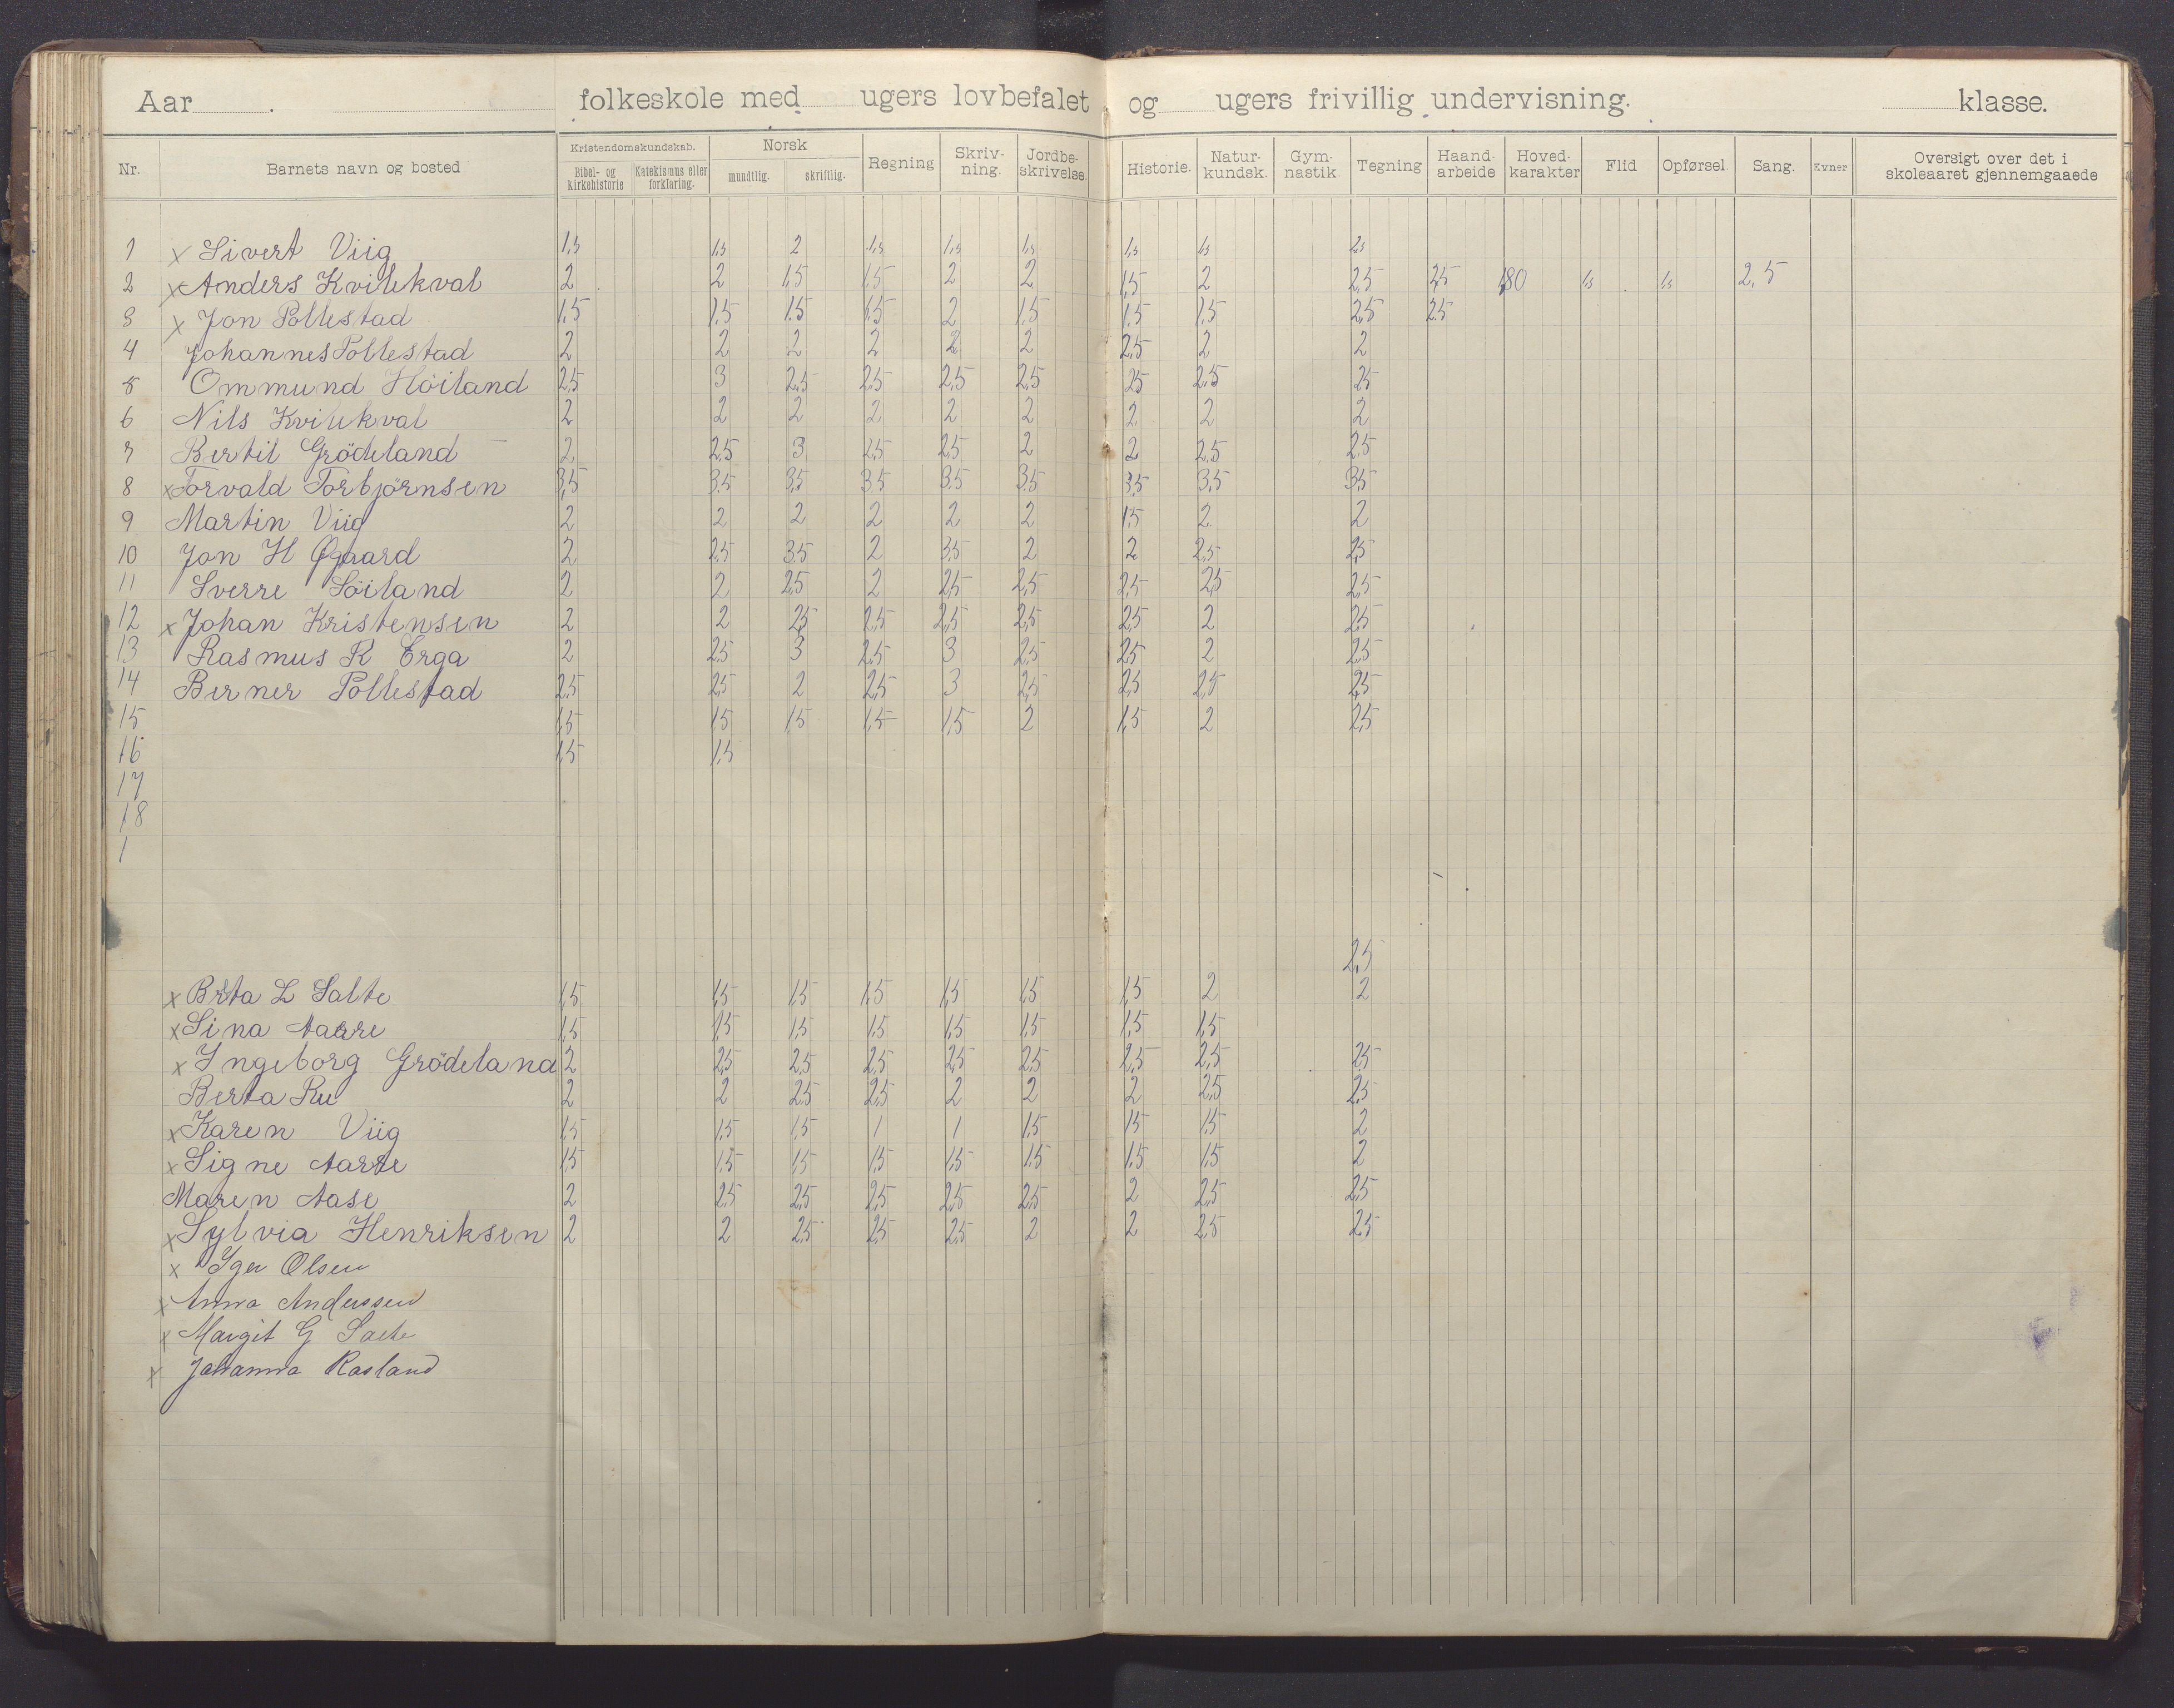 Aar . folkeskole med ugers lovbefalet og ugers frivillig undervisning. klasse.
Nr. Barnets navn og bosted Kristendomskundskab. Bibel- og kirkehistorie Katekismus eller forklaring. Norsk mundtlig. skriftlig. Regning Skriv-ning. Jordbe-skrivelse. Historie. Natur-kundsk. Gym-nastik Tegning Haand-arbeide Hoved-karakter Flid Opførsel Sang. Evner Oversigt over det i skoleaaret gjennemgaaede
1 x Sivert Viig 1,5 1,5 2 1,5 1,5 1,5 1,5 1,5 2,5
2 x Anders Kvilekval 2 2 1,5 1,5 2 2 1,5 2 2,5 2,5 1,80 1,5 1,5 2,5
3 x Jon Pollestad 1,5 1,5 1,5 1,5 2 1,5 1,5 1,5 2,5 2,5
4 Johannes Pollestad 2 2 2 2 2 2 2,5 2 2
5 Ommund Höiland 2,5 3 2,5 2,5 2,5 2,5 2,5 2,5 2,5
6 Nils Kvilekval 2 2 2 2 2 2 2 2 2
7 Bertil Grödeland 2 2,5 3 2,5 2,5 2 2 2,5 2,5
8 x Torvald Torbjörnsen 3,5 3,5 3,5 3,5 3,5 3,5 3,5 3,5 3,5
9 Martin Viig 2 2 2 2 2 2 1,5 2 2
10 Jon H Øgaard 2 2,5 3,5 2 3,5 2 2 2,5 2,5
11 Sverre Söiland 2 2 2,5 2 2,5 2,5 2,5 2,5 2,5
12 x Johan Kristensen 2 2 2,5 2,5 2,5 2,5 2,5 2 2,5
13 Rasmus R Erga 2 2,5 3 2,5 3 2,5 2,5 2 2,5
14 Berner Pollestad 2,5 2,5 2 2,5 3 2,5 2,5 2,5 2,5
15 1,5 1,5 1,5 1,5 1,5 2 1,5 2 2,5
16 1,5 1,5
17
18
1
2,5
x Brta L Salte 1,5 1,5 1,5 1,5 1,5 1,5 1,5 2 2
x Sina Aarre 1,5 1,5 1,5 1,5 1,5 1,5 1,5 1,5
x Ingeborg Grödeland 2 2,5 2,5 2,5 2,5 2,5 2,5 2,5 2,5
Berta Ru 2 2 2,5 2,5 2 2 2 2,5 2,5
x Karen Viig 1,5 1,5 1,5 1 1 1,5 1,5 1,5 2
x Signe Aarre 1,5 1,5 1,5 1,5 1,5 1,5 1,5 1,5 2
Maren Aase 2 2,5 2,5 2,5 2,5 2,5 2 2,5 2,5
x Sylvia Henriksen 2 2 2,5 2,5 2,5 2 2 2,5 2,5
x Olsen
x Anna Anderssen
x Margit G Salte
x Johanna Rasland